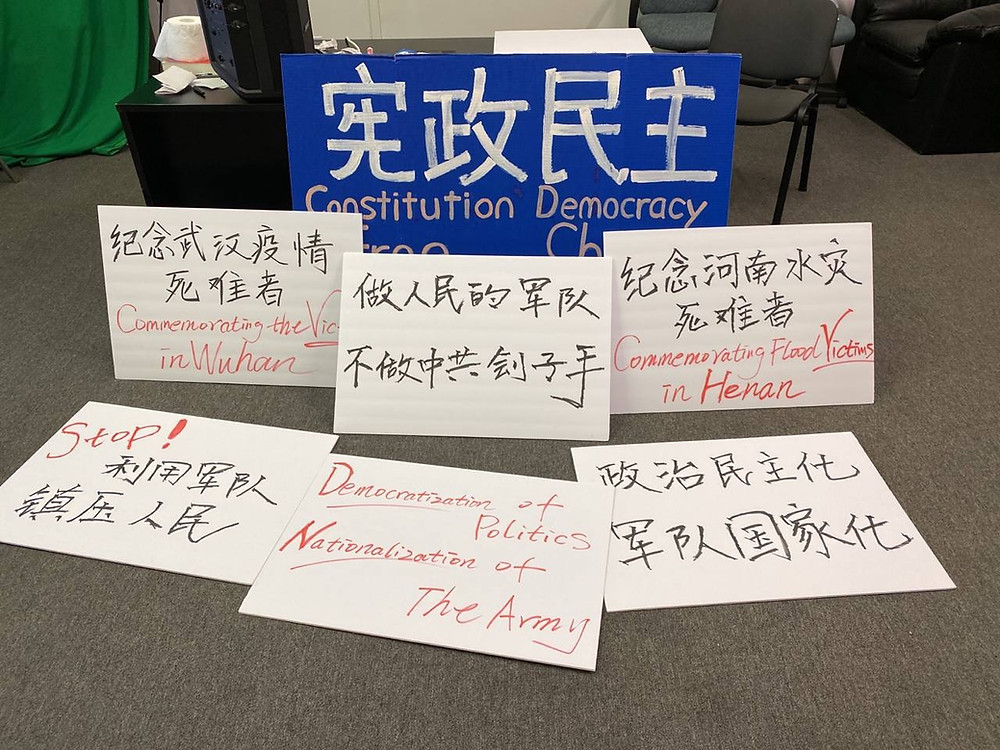 宪政民主
Constitution Democracy
纪念武汉疫情
死难者
Commemorating the Vic
in Wuhan
做人民的军队
不做中共刽子手
纪念河南水灾
死难者
Commemorating Flood Victims
in Henan
Stop!
利用军队
镇压人民
Democratization of
Politics
Nationalization of
The Army
政治民主化
军队国家化